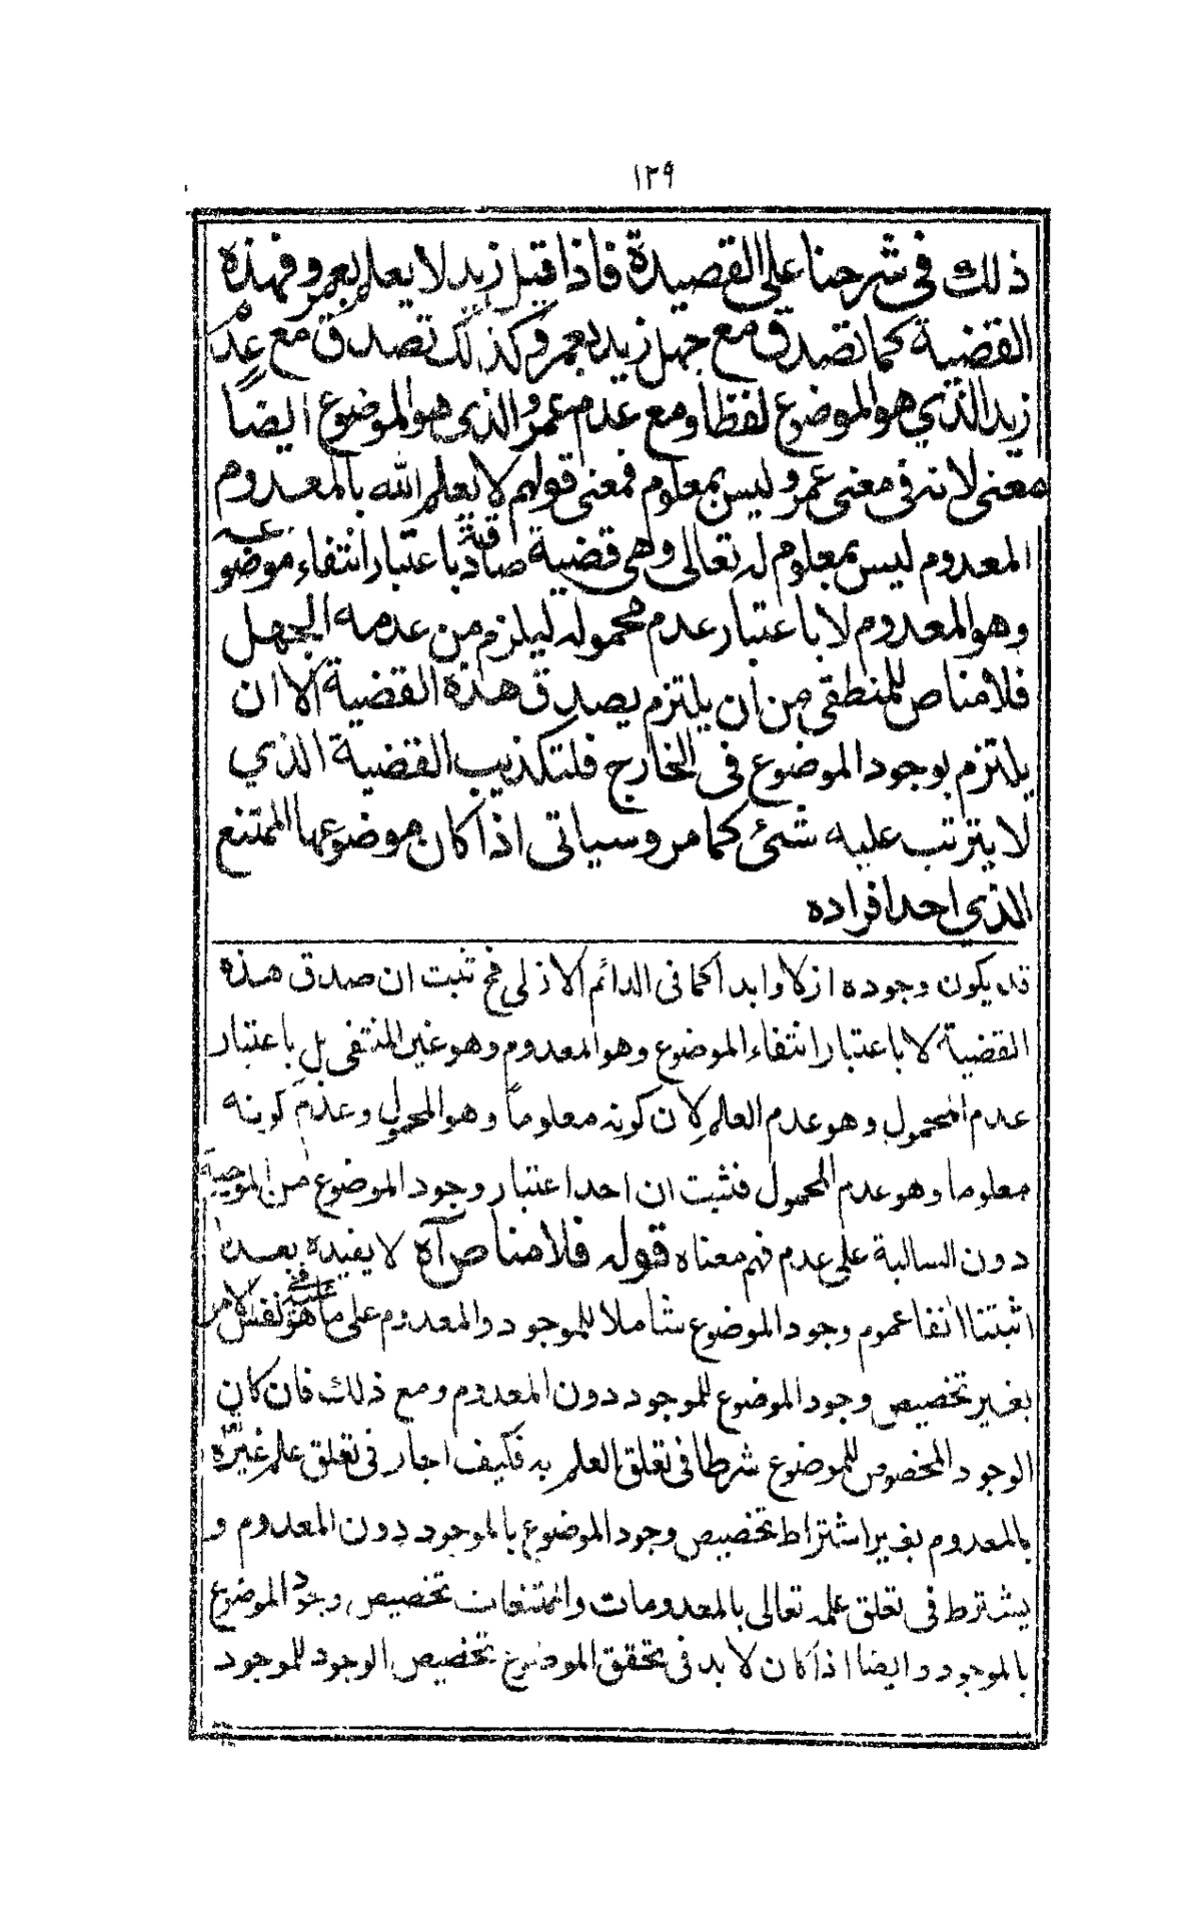 ١٢٩
ذلك فى شرحنا على القصيدة فاذا قيل زيد لا يعلم بعمرو فهذه
القضية كما تصدق مع جهل زيد بعمرو كذلك تصدق مع عدم
زيد الذي هو الموضوع لفظا ومع عدم عمرو الذى هو الموضوع ايضا
معنى لانه فى معنى عمرو ليس بمعلوم فمعنى قولهم لا يعلم الله بالمعدوم
المعدوم ليس بمعلوم له تعالى وهى قضية صادقة باعتبار انتفاء موضوعه
وهو المعدوم لا باعتبار عدم محموله ليلزم من عدمه الجهل
فلا مناص للمنطقى من ان يلتزم بصدق هذه القضية الا ان
يلتزم بوجود الموضوع فى الخارج فلتكذيب القضية الذي
لا يترتب عليه شئ كما مر وسياتى اذا كان موضوعها الممتنع
الذي احد افراده
قد يكون وجوده ازلا وابدا كما فى الدائم الازلى فح ثبت ان صدق هذه
القضية لا باعتبار انتفاء الموضوع وهو المعدوم وهو غير المنتفى بل باعتبار
عدم المحمول وهو عدم العلم لان كونه معلوماً وهو المحمول وعدم كونه
معلوما وهو عدم المحمول فثبت ان احد اعتبار وجود الموضوع من الموجبة
دون السالبة على عدم فهم معناه قوله فلا مناص آه لا يفيده بعد
اثبتنا انفا عموم وجود الموضوع شاملا للموجود والمعدوم على ما هو نفس الامر
بغير تخصيص وجود الموضوع للموجود دون المعدوم ومع ذلك فان كان
الوجود المخصوص للموضوع شرطا فى تعلق العلم به فكيف اجاز فى تعلق علم غيره
بالمعدوم بغير اشتراط تخصيص وجود الموضوع بالموجود دون المعدوم و
يشترط فى تعلق علمه تعالى بالمعدومات والممتنعات تخصيص وجود الموضوع
بالموجود وايضا اذا كان لا بد فى تحقق الموضوع تخصيص الوجود للموجود